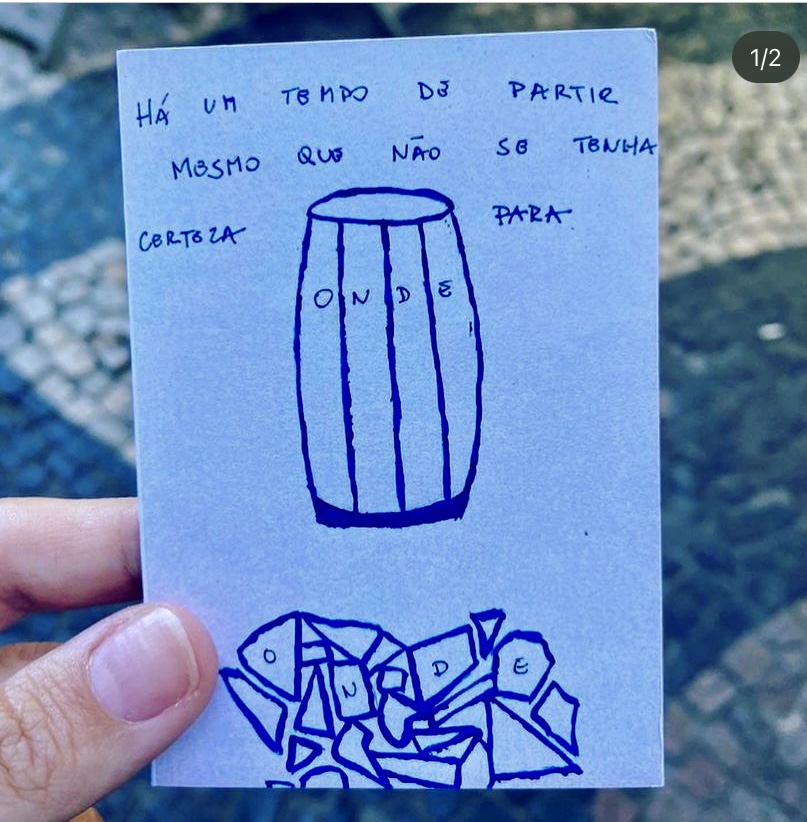 1/2
HÁ UM TEMPO DE PARTIR
MESMO QUE NÃO SE TENHA
CERTEZA PARA
O N D E
O N D E